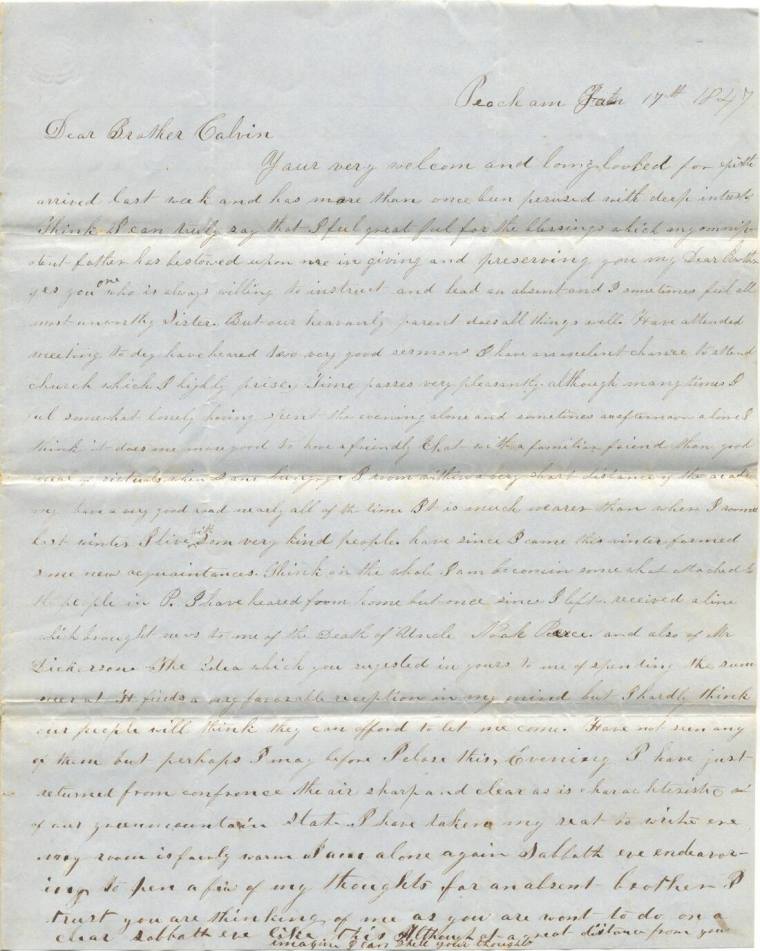 Peacham Jan 17th 1847
Dear Brother Calvin
Your very welcom and long looked for epistle
arrived last week and has more than once been perused with deep interest
Think I can truly say that I feel greatful for the blessings which my omnip
otent father has bestowed upon me in giving and preserving you my Dear brother
yes you one who is always willing to instruct and lead an absent and I sometimes feel all
most unworthy Sister. But our heavenly parent does all things well. Have attended
meeting to day have heared two very good sermons I have an excelent chance to attend
church which I highly prise. Time passes very pleasantly although many times I
feel somewhat lonely having spent the evening alone and sometimes an afternoon alone I
think it does me more good to have a friendly Chat with a familiar friend than good
victuals when I am hungry. I room within a very short distance of the acade
my have a very good road nearly all of the time It is much nearer than where I roomed
last winter I live with some very kind people. have since I came this winter formed
some new acquaintances. Think on the whole I am becomin some what attached to
the people in P. I have heared from home but once since I left. received a line
which brought news to me of the Death of Uncle Noah and also of Mr
Dickerson. The Idea which you sugested in yours to me of spending the sum
mer at H finds a very favorable reception in my mind but I hardly think
our people will think they can afford to let me come. Have not seen any
of them but perhaps I may before I close this, Evening I have just
returned from confrence the air sharp and clear as is charachteristic
of our greenmountain State. I have taken my seat to write
my room is fairly warm I am alone again Sabbath eve endeavor-
ing to pen a few of my thoughts for an absent brother. I
trust you are thinking of me as you are wont to do on a
clear sabbath eve like this Although at a great distance from you
imagine I can tell your thoughts